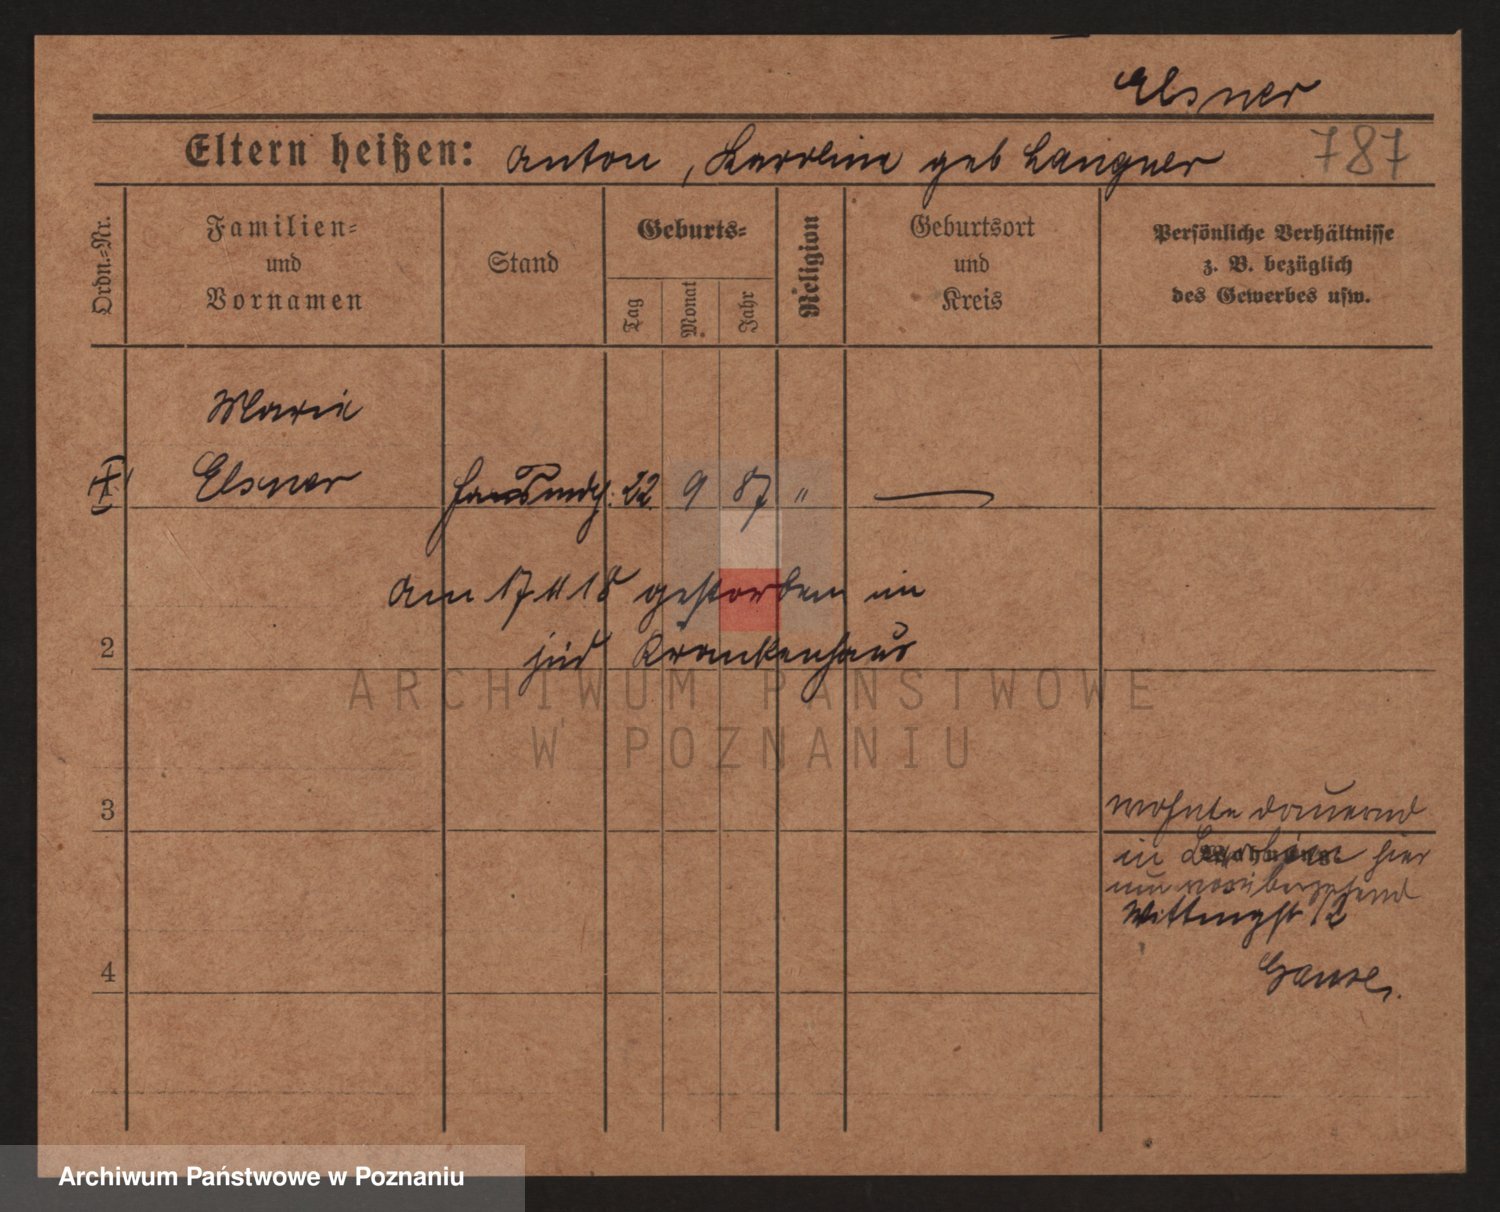 Elsner
Eltern heißen: Anton, Karoline geb Langner 787
Ordn.=Nr.
Familien=
und
Vornamen
Stand
Geburts=
Tag
Monat
Jahr
Religion
Geburtsort
und
Kreis
Persönliche Verhältnisse
z. B. bezüglich
des Gewerbes usw.
Marie
Elsner Hausmdch. 22 9 87 "
am 17 11 18 gestorben im
2
jüd Krankenhaus
3
wohnte dauernd
Wohnung:
in hier
nur vorübergehend
Wittingstr 12
4
ARCHIWUM PAŃSTWOWE
W POZNANIU
Archiwum Państwowe w Poznaniu